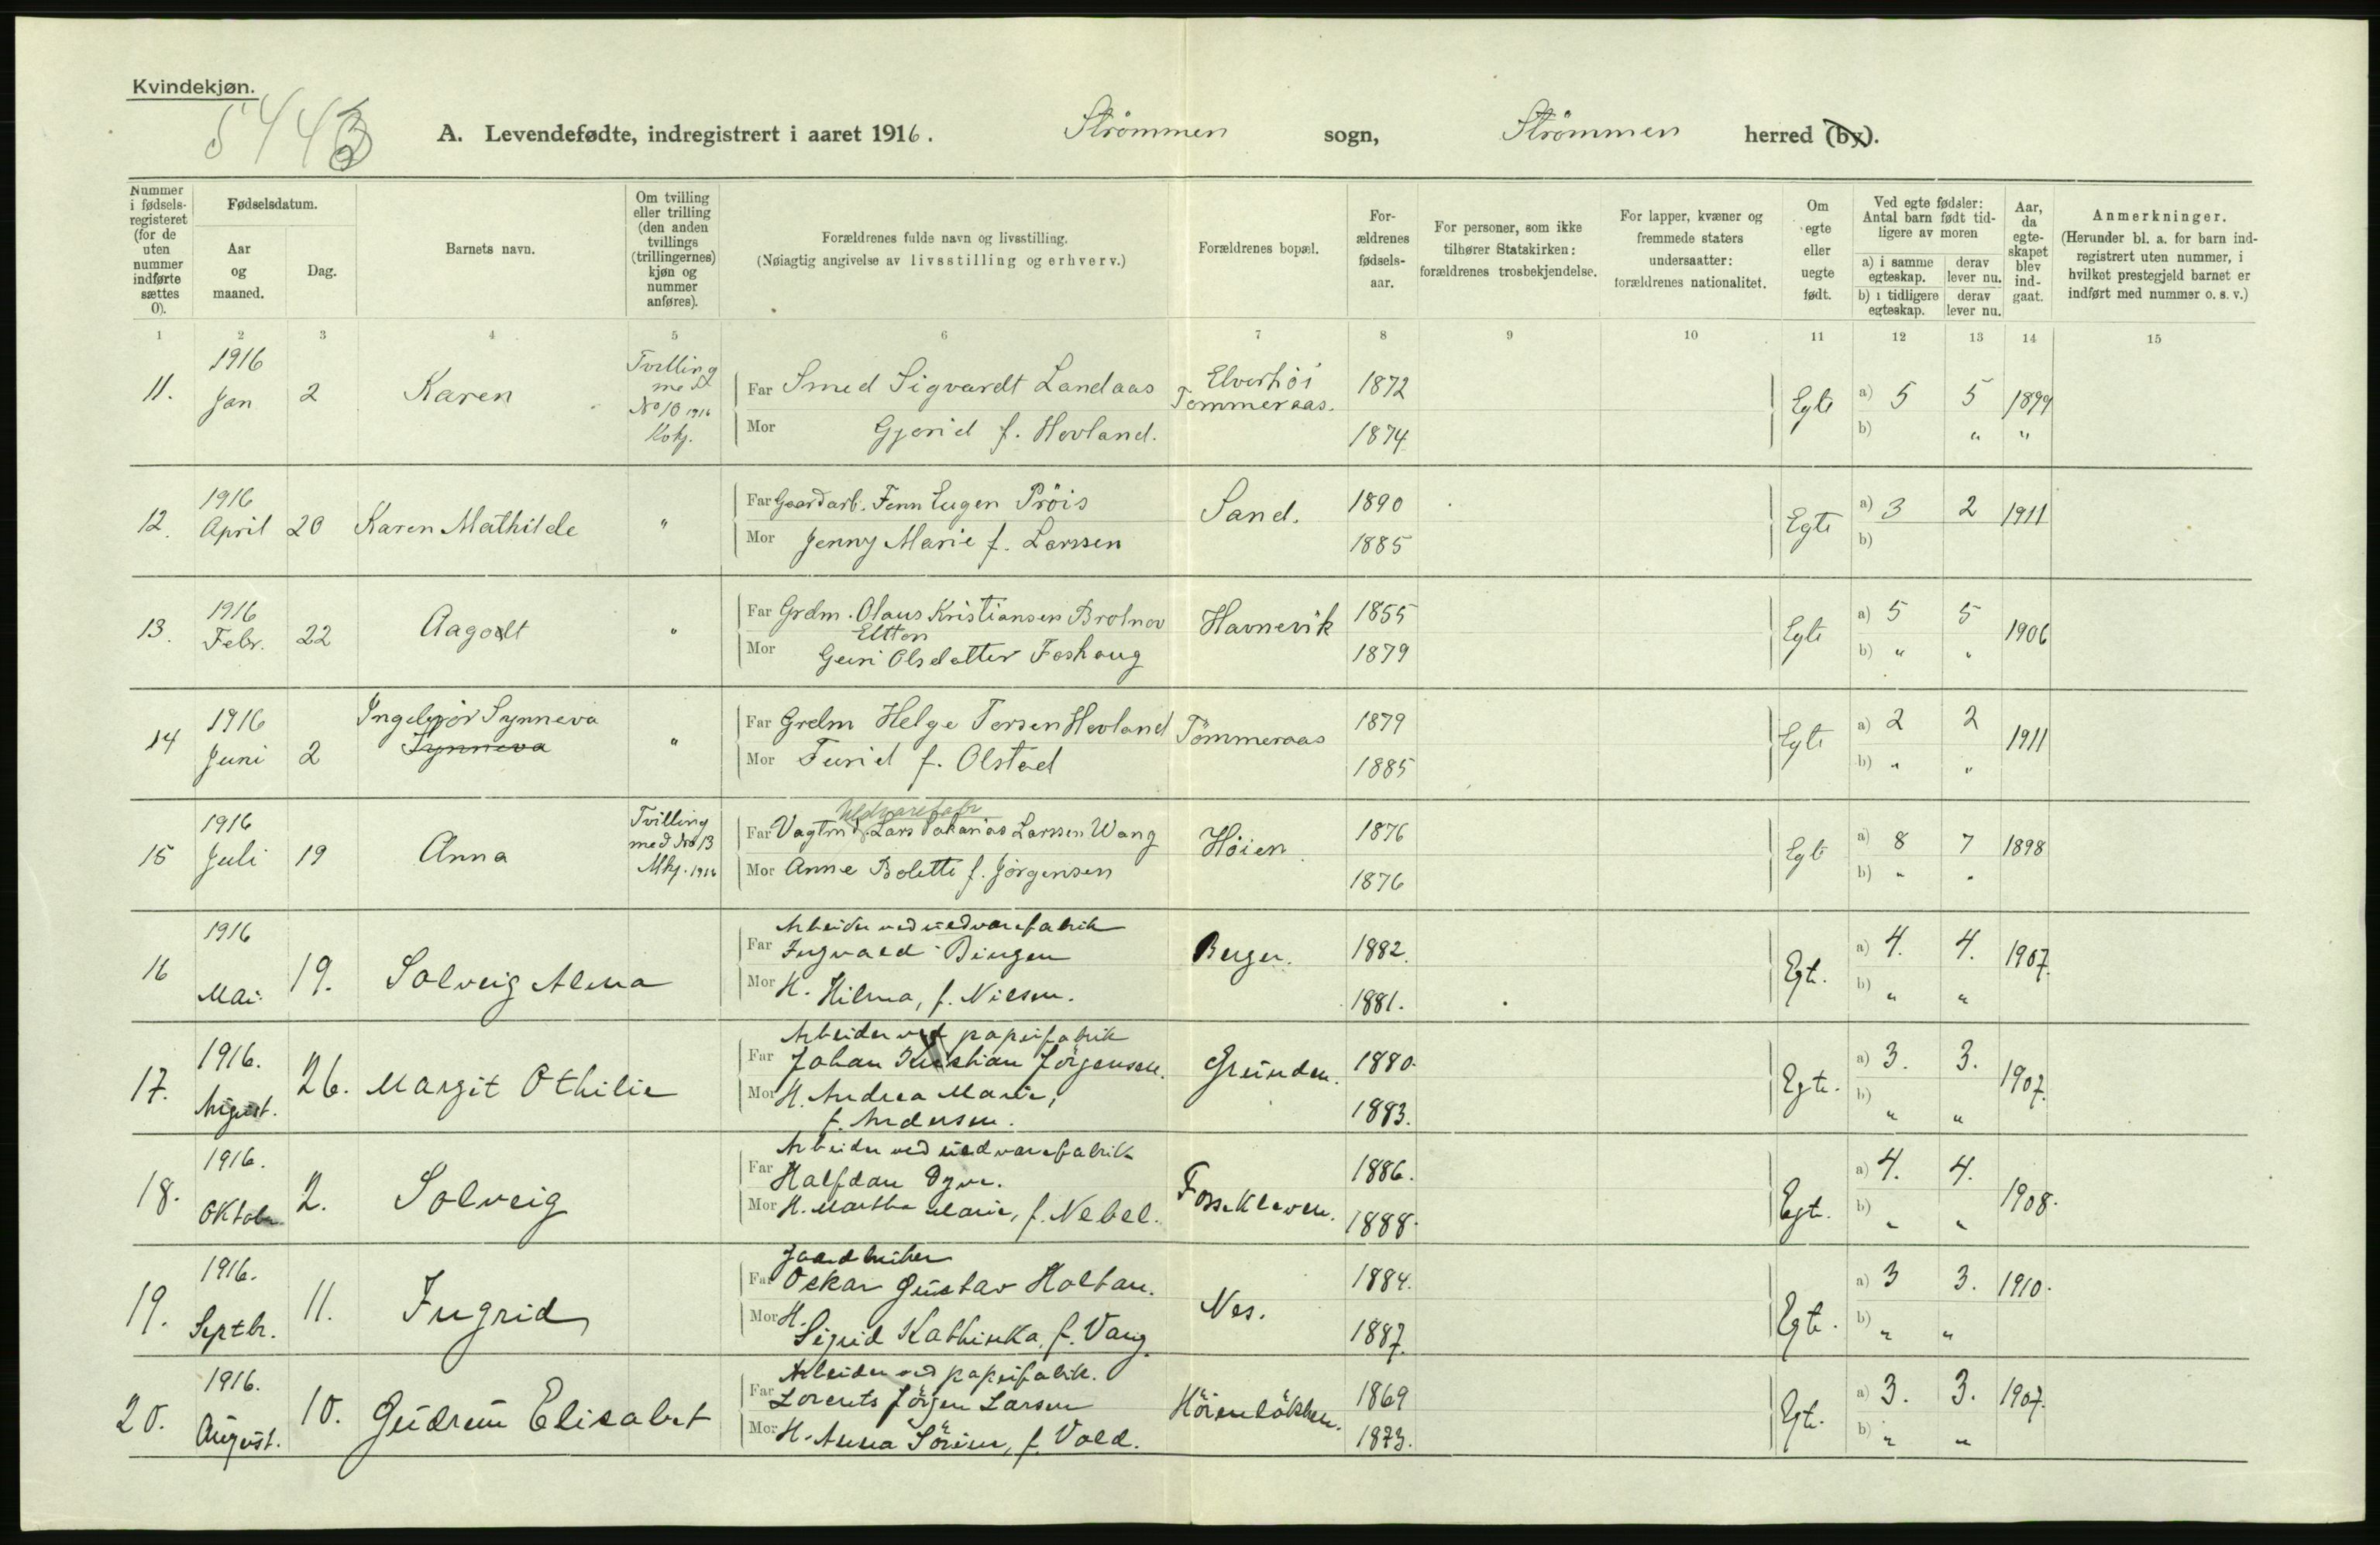 Kvindekjøn.
5443
A. Levendefødte, indregistrert i aaret 1916. Strömmen sogn, Strömmen herred (by).
Nummer i fødsels-registeret (for de uten nummer indførte sættes 0).
Fødselsdatum.
Aar og maaned.
Dag.
Barnets navn.
Om tvilling eller trilling (den anden tvillings (trillingernes) kjøn og nummer anføres).
Forældrenes fulde navn og livsstilling.
(Nøiagtig angivelse av livsstilling og erhverv.)
Forældrenes bopæl.
For-ældrenes fødsels-aar.
For personer, som ikke tilhører Statskirken: forældrenes trosbekjendelse.
For lapper, kvæner og fremmede staters undersaatter: forældrenes nationalitet.
Om egte eller uegte født.
Ved egte fødsler: Antal barn født tid-ligere av moren
a) i samme egteskap. derav lever nu.
b) i tidligere egteskap. derav lever nu.
Aar, da egte-skapet blev ind-gaat.
Anmerkninger.
(Herunder bl. a. for barn ind-registrert uten nummer, i hvilket prestegjeld barnet er indført med nummer o. s. v.)
1 2 3 4 5 6 7 8 9 10 11 12 13 14 15
11. 1916 Jan 2 Karen Tvilling med No 10 1916 Kvkj.
Far Smed Sigvardt Landaas Elverhöi Tømmeraas. 1872 Egte a) 5 5 1899
Mor Gjørid f. Hovland. 1874 b) " "
12. 1916 April 20 Karen Mathilde "
Far Gaardarb. Fenn Eugen Pröis Sand. 1890 Egte a) 3 2 1911
Mor Jenny Marie f. Larssen 1885 b)
13. 1916 Febr. 22 Aagodt "
Far Grdm. Olaus Kristiansen Havnevik 1855 Egte a) 5 5 1906
Mor Guri Olsdatter Foshaug 1879 b) " "
14 1916 Juni 2 Ingebjör Synneva Synneva "
Far Grdm Helge Torsen Hovland Tömmeraas 1879 Egte a) 2 2 1911
Mor Turid f. Olstad 1885 b) " "
15 1916 Juli 19 Anna Tvilling med No 13 Mkj. 1916
Uldvarefabr
Far Vagtm. Lars Sakarias Larssen Wang Höien. 1876 Egte a) 8 7 1898
Mor Anne Bolette f. Jörgensen 1876 b) " "
16 1916 Mai. 19. Solveig Alma
Arbeider ved uldvarefabrik
Far Ingvald Bingen Berger. 1882. Egte. a) 4. 4. 1907.
Mor H. Hilma, f. Nilsen. 1881. b) " "
17. 1916. August. 26. Margit Othilie
Arbeider ved papirfabrik
Far Johan Kristian Jörgensen. Grunden. 1880. Egte. a) 3. 3. 1907.
Mor H. Andrea Marie, 1883. b) " "
f. Andersen.
18. 1916. Oktober 2. Solveig
Arbeider ved uldvarefabrik
Far Halfdan Dyve. Fossekleven. 1886. Egte. a) 4. 4. 1908.
Mor H. Martha Marie, f. Nebel. 1888. b) " "
19. 1916. Septbr. 11. Ingrid
Gaardbruker
Far Oskar Gustav Holtan. Nes. 1884. Egte. a) 3 3. 1910.
Mor H. Sigrid Kathinka, f. Vang. 1887. b) " "
20. 1916. August. 10. Gudrun Elisabet
Arbeider ved papirfabrik.
Far Lorents Jörgen Larsen Hörenlökken. 1869 Egte. a) 3. 3. 1907.
Mor H. Anna Sörine, f. Vold. 1873. b) " "